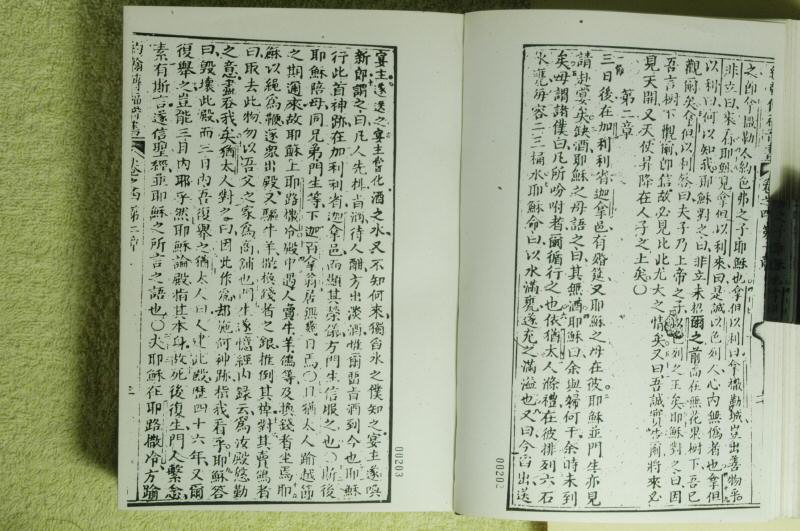 非立曰來看耶穌見拿但以利來曰是誠以色列人心內無僞者也拿但
以利曰何以知我耶穌對之曰非立未招爾之前尙在無花果樹下吾已
觀爾矣拿但以利答曰夫子乃上帝之子以色列之王矣耶穌對之曰因
吾言樹下觀爾卽信故必見比此尤大之情矣又曰吾誠實吿爾將來必
見天開又天使昇降在人子之上矣〇
第二章
三日後在加利利省迦拿邑有婚筵又耶穌之母在彼耶穌並門生亦見
請赴宴矣缺酒耶穌之母語之曰其無酒耶穌曰余與婦何干余時未到
矣母謂諸僕曰凡所吩咐者爾循行之也依猶太人滌禮在彼排列六石
水甕每容二三桶水耶穌命曰以水滿甕遂充之滿溢也又曰今舀出送
00202
宴主遂送之宴主嘗化酒之水又不知何來獨舀水之僕知之宴主遂喚
新郎謂之曰凡人先排旨酒待人酣方出淡酒惟爾留旨酒到今也耶穌
行此首神跡在加利利省迦拿邑而顯其榮儀方門生信服之也〇斯後
耶穌陪母同兄弟門生等下迦百拿翁居無幾日焉〇且猶太人踰越節
之期邇來故耶穌上耶路撒冷殿中遇人賣牛羊鴿等及換錢者坐焉耶
穌以繩爲鞭逐衆出殿又驅牛羊散換錢者之銀推倒其棹對其賣鴿者
曰取去此物勿以吾父之家爲商舖也門生遂憶經內錄云爲汝殿慇勤
之意盡吞我矣猶太人對之曰因此作爲却施何神跡指我看乎耶穌答
曰毀壞此殿而三日內吾復舉之猶太人曰人建此殿歷四十六年又爾
復舉之豈能三日內耶乎然耶穌論殿指其本身故死後復生門人繫念
素有斯言遂信聖經並耶穌之所言之語也〇夫耶穌在耶路撒冷方踰
約翰傳福音書 卷之四 第二章 三
00203